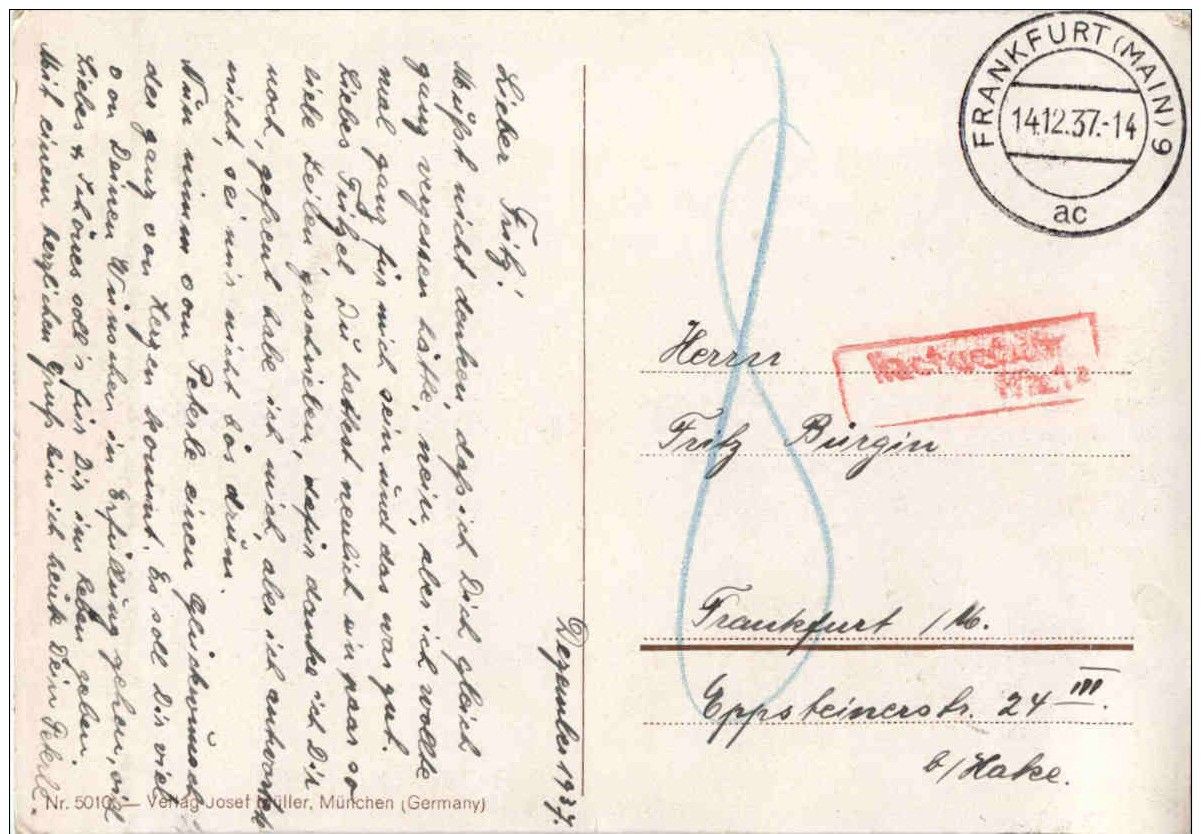 Dezember 1937.
Lieber Fritz!
Müßt nicht denken, daß ich Dich gleich
ganz vergessen hätte, nein, aber ich wollte
mal ganz für mich sein und das war gut.
Liebes Fritzel Du hattest neulich ein paar so
liebe Zeilen geschrieben, dafür danke ich Dir
noch, gefreut habe ich mich, aber ich antwortete
nicht, sei mir nicht bös drüm.
Nün nimm vom Peterle einen Glückwünsch
der ganz von Herzen kommt. Es soll Dir viel
von Deinen Wünschen in Erfüllung gehen, viel
Liebes & Schönes soll's für Dir im Leben geben.
Mit einem herzlichen Grüß bin ich heute Dein Peterle.
Nr. 5010 — Verlag Josef Müller, München (Germany)
FRANKFURT (MAIN) 9
14.12.37.-14
ac
8
Herrn
Fritz Bürgin
Frankfurt /M.
Eppsteinerstr. 24 III.
b/Hake.